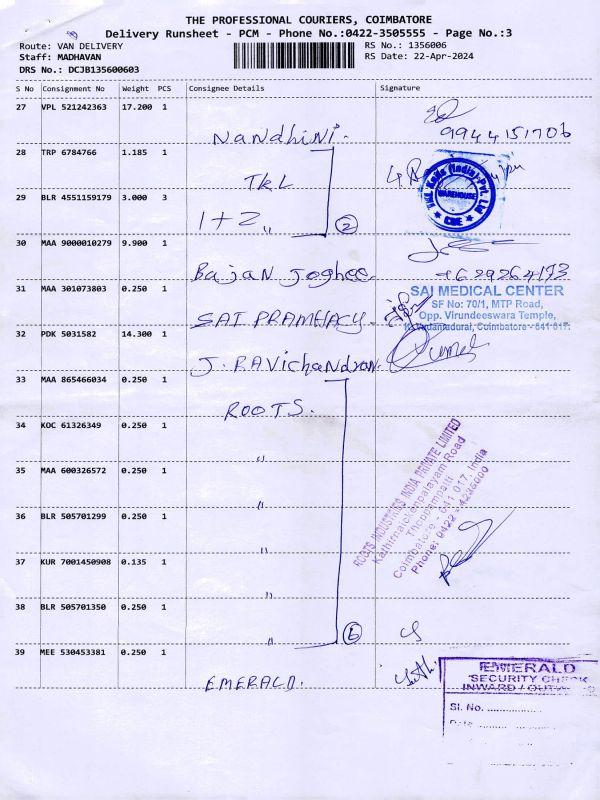 THE PROFESSIONAL COURIERS, COIMBATORE
Delivery Runsheet - PCM - Phone No.:0422-3505555 - Page No.:3
Route: VAN DELIVERY
RS No.: 1356006
Staff: MADHAVAN
RS Date: 22-Apr-2024
DRS No.: DCJB135600603
S No Consignment No Weight PCS Consignee Details Signature
27 VPL 521242363 17.200 1
Nandhini.
9944151706
28 TRP 6784766 1.185 1
TKL
THE Kadle (India) Pvt. Ltd
WAREHOUSE
CBE
29 BLR 4551159179 3.000 3
1+2 〃
2
30 MAA 9000010279 9.900 1
Bajan Joghee
31 MAA 301073803 0.250 1
SAI PRAMHACY.
SAI MEDICAL CENTER
SF No: 70/1, MTP Road,
Opp. Virundeeswara Temple,
Vadamadurai, Coimbatore - 641 017.
32 PDK 5031582 14.300 1
J. RAVichandran.
33 MAA 865466034 0.250 1
ROOTS.
34 KOC 61326349 0.250 1
〃
35 MAA 600326572 0.250 1
〃
36 BLR 505701299 0.250 1
〃
37 KUR 7001450908 0.135 1
〃
38 BLR 505701350 0.250 1
〃
6
ROOTS INDUSTRIES INDIA PRIVATE LIMITED
Kathirnaickenpalayam Road
Thoppampatti
Coimbatore - 641 017. India
Phone: 0422 - 4235000
39 MEE 530453381 0.250 1
EMERALD.
EMERALD
SECURITY CHECK
INWARD / OUTWARD
Sl. No. ..............
Date